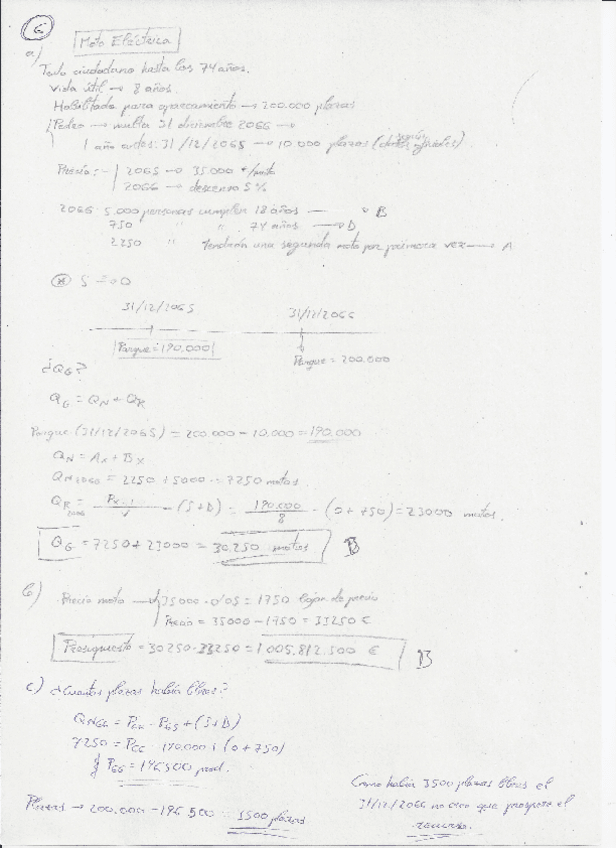 6
a) Moto Eléctrica
Todo ciudadano hasta los 74 años.
Vida útil → 8 años.
Habilitada para aparcamiento → 200.000 plazas
Pedro → multa 31 diciembre 2066 →
1 año antes: 31/12/2065 → 10.000 plazas (datos oficiales)
Precio: 2065 → 35.000 €/moto
2066 → descenso 5%
2066: 5.000 personas cumplen 18 años → B
750 " " 74 años → D
2250 " Tendrán una segunda moto por primera vez → A
S = 0
31/12/2065 31/12/2066
Parque = 190.000 Parque = 200.000
¿QG?
QG = QN + QR
Parque (31/12/2065) = 200.000 - 10.000 = 190.000
QN = Ax + Bx
QN 2066 = 2250 + 5000 = 7250 motos
QR 2066 = - (S+D) = 190.000 / 8 - (0 + 750) = 23000 motos.
QG = 7250 + 23000 = 30.250 motos B
b) Precio moto → 35000 · 0'05 = 1750 bajan de precio
Precio = 35000 - 1750 = 33250 €
Presupuesto = 30250 · 33250 = 1.005.812.500 € B
c) ¿Cuántas plazas había libres?
QN66 = P66 - P65 + (S+D)
7250 = P66 - 190.000 + (0 + 750)
P66 = 196500
Plazas → 200.000 - 196.500 = 3500 plazas
Como había 3500 plazas libres el
31/12/2066 no creo que prospere el
recurso.